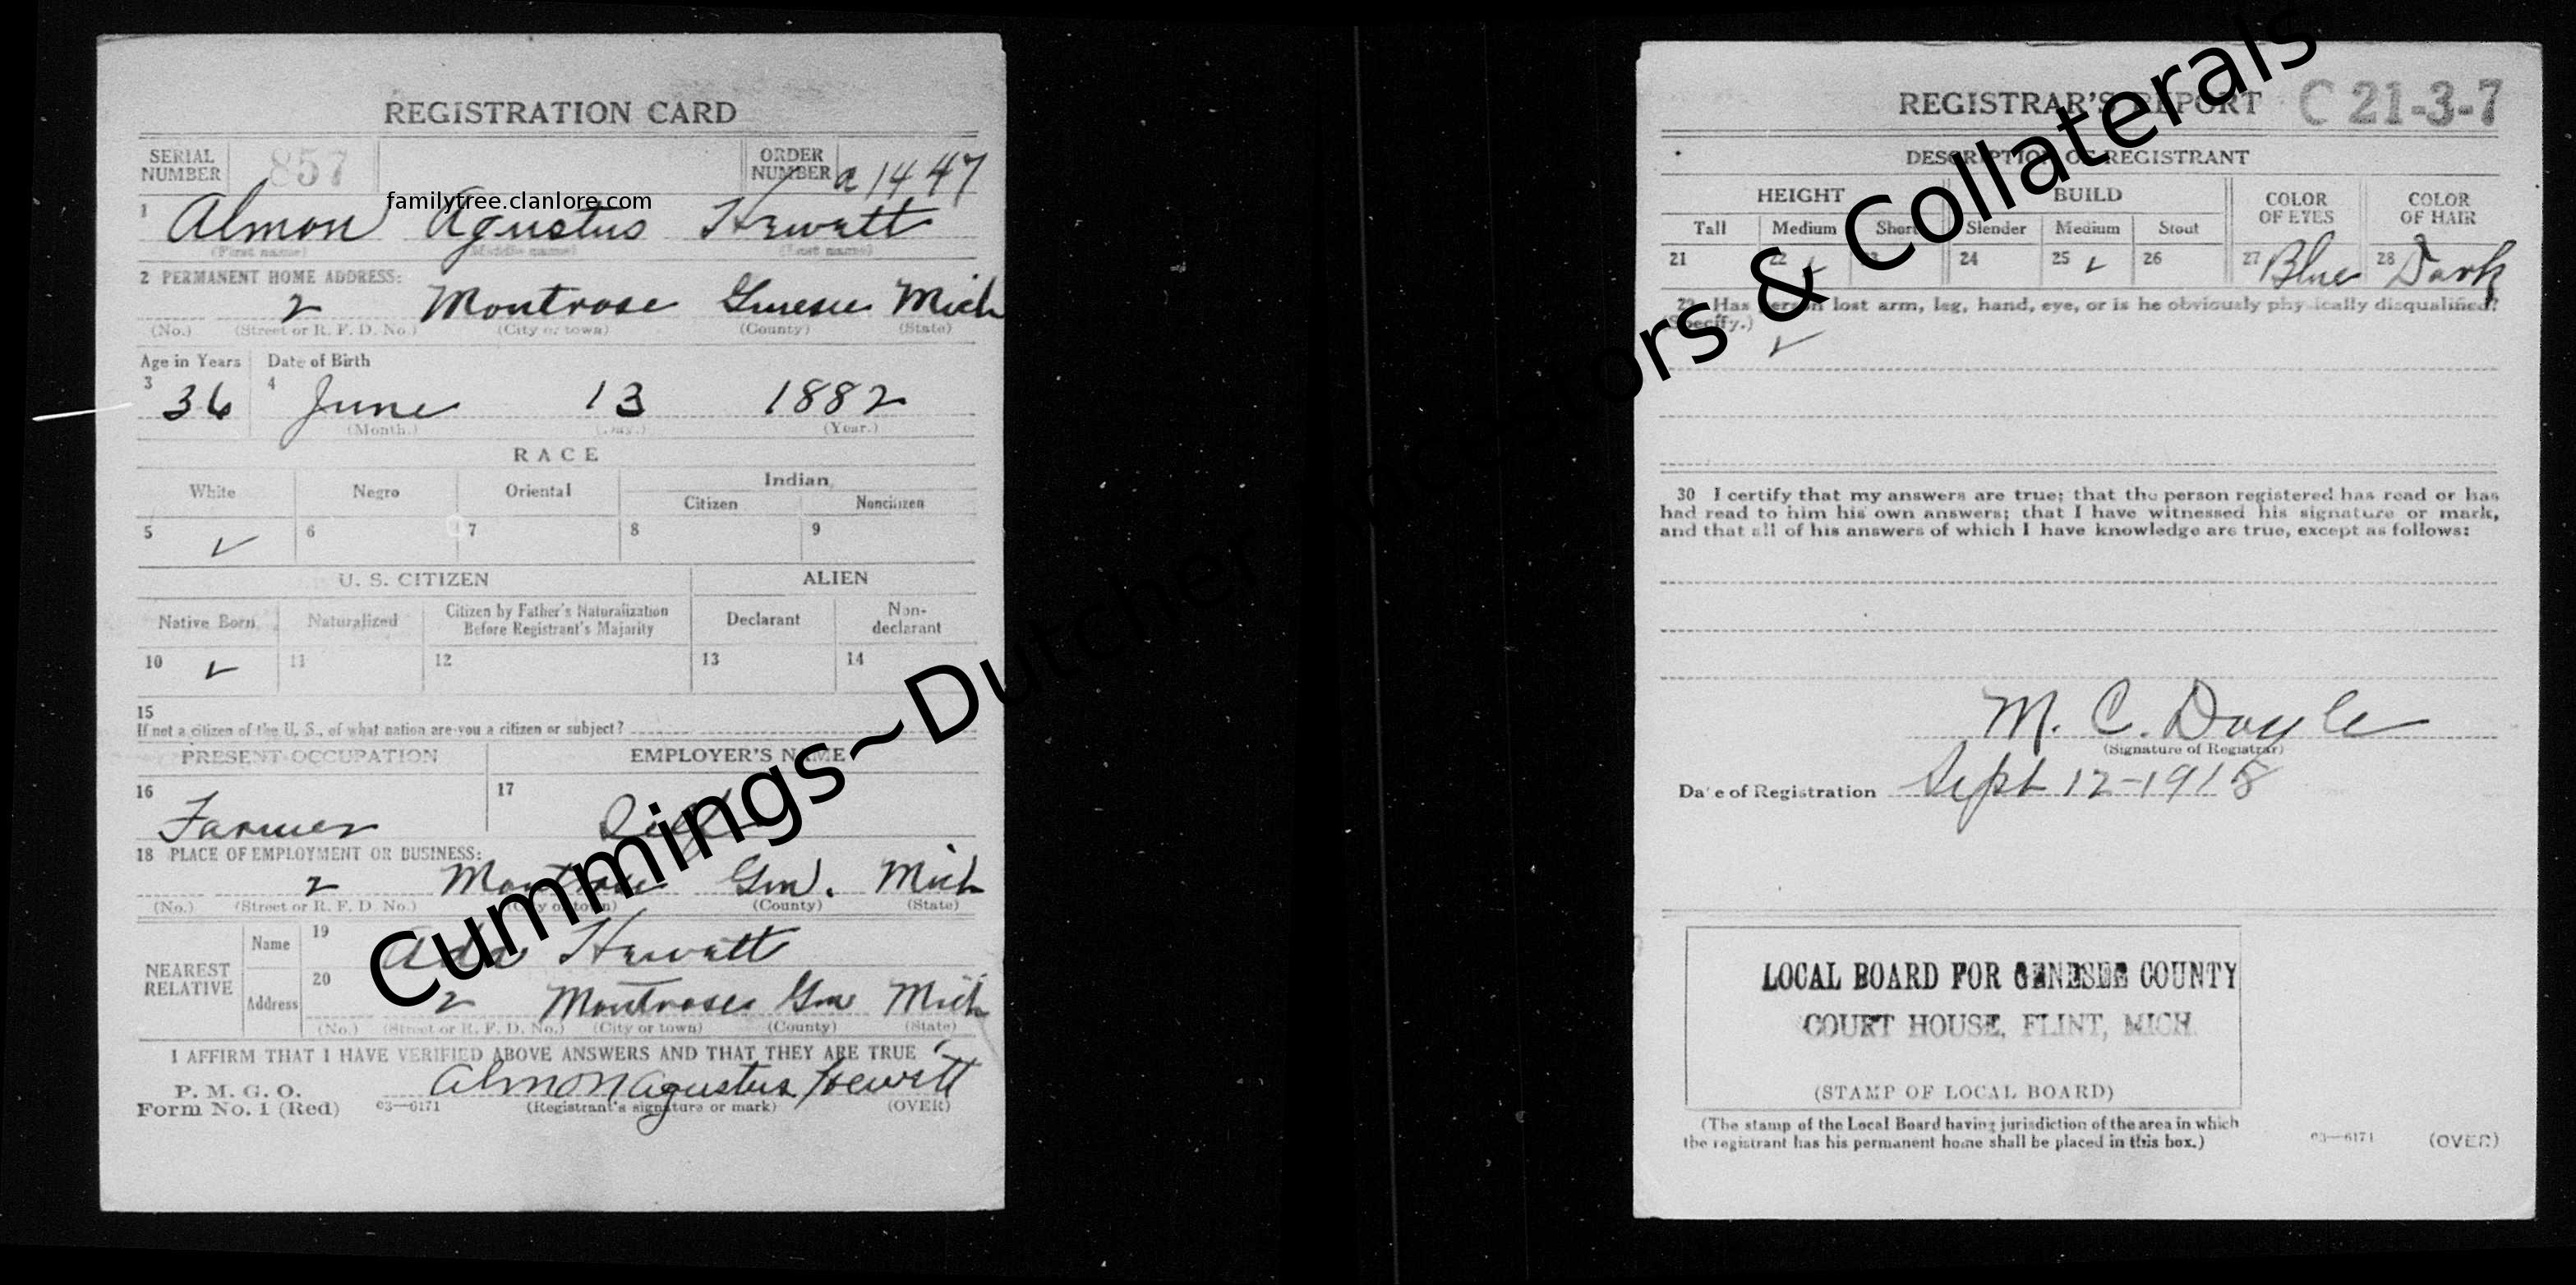 REGISTRATION CARD
SERIAL NUMBER 857 ORDER NUMBER a 1447
familytree.clanlore.com
1 Almon Agustus Hewett
(First name) (Middle name) (Last name)
2 PERMANENT HOME ADDRESS:
2 Montrose Genesee Mich
(No.) (Street or R. F. D. No.) (City or town) (County) (State)
Age in Years Date of Birth
3 36 4 June 13 1882
(Month.) (Day.) (Year.)
RACE
White Negro Oriental Indian
Citizen Noncitizen
5 ✓ 6 7 8 9
U. S. CITIZEN ALIEN
Native Born Naturalized Citizen by Father's Naturalization Before Registrant's Majority Declarant Non-declarant
10 ✓ 11 12 13 14
15
If not a citizen of the U. S., of what nation are you a citizen or subject?
PRESENT OCCUPATION EMPLOYER'S NAME
16 Farmer 17 Self
18 PLACE OF EMPLOYMENT OR BUSINESS:
2 Montrose Gen. Mich
(No.) (Street or R. F. D. No.) (City or town) (County) (State)
NEAREST RELATIVE Name 19 Ada Hewett
Address 20 2 Montrose Gen Mich
(No.) (Street or R. F. D. No.) (City or town) (County) (State)
I AFFIRM THAT I HAVE VERIFIED ABOVE ANSWERS AND THAT THEY ARE TRUE
P. M. G. O.
Form No. 1 (Red) 03—6171 Almon Agustus Hewitt
(Registrant's signature or mark) (OVER)
Cummings~Dutcher Ancestors & Collaterals
REGISTRAR'S REPORT C 21-3-7
DESCRIPTION OF REGISTRANT
HEIGHT BUILD COLOR OF EYES COLOR OF HAIR
Tall Medium Short Slender Medium Stout
21 22 ✓ 23 24 25 ✓ 26 27 Blue 28 Dark
29 Has person lost arm, leg, hand, eye, or is he obviously physically disqualified?
(Specify.)
✓
30 I certify that my answers are true; that the person registered has read or has
had read to him his own answers; that I have witnessed his signature or mark,
and that all of his answers of which I have knowledge are true, except as follows:
M. C. Doyle
(Signature of Registrar)
Date of Registration Sept 12-1918
LOCAL BOARD FOR GENESEE COUNTY
COURT HOUSE, FLINT, MICH.
(STAMP OF LOCAL BOARD)
(The stamp of the Local Board having jurisdiction of the area in which
the registrant has his permanent home shall be placed in this box.)
03—6171 (OVER)